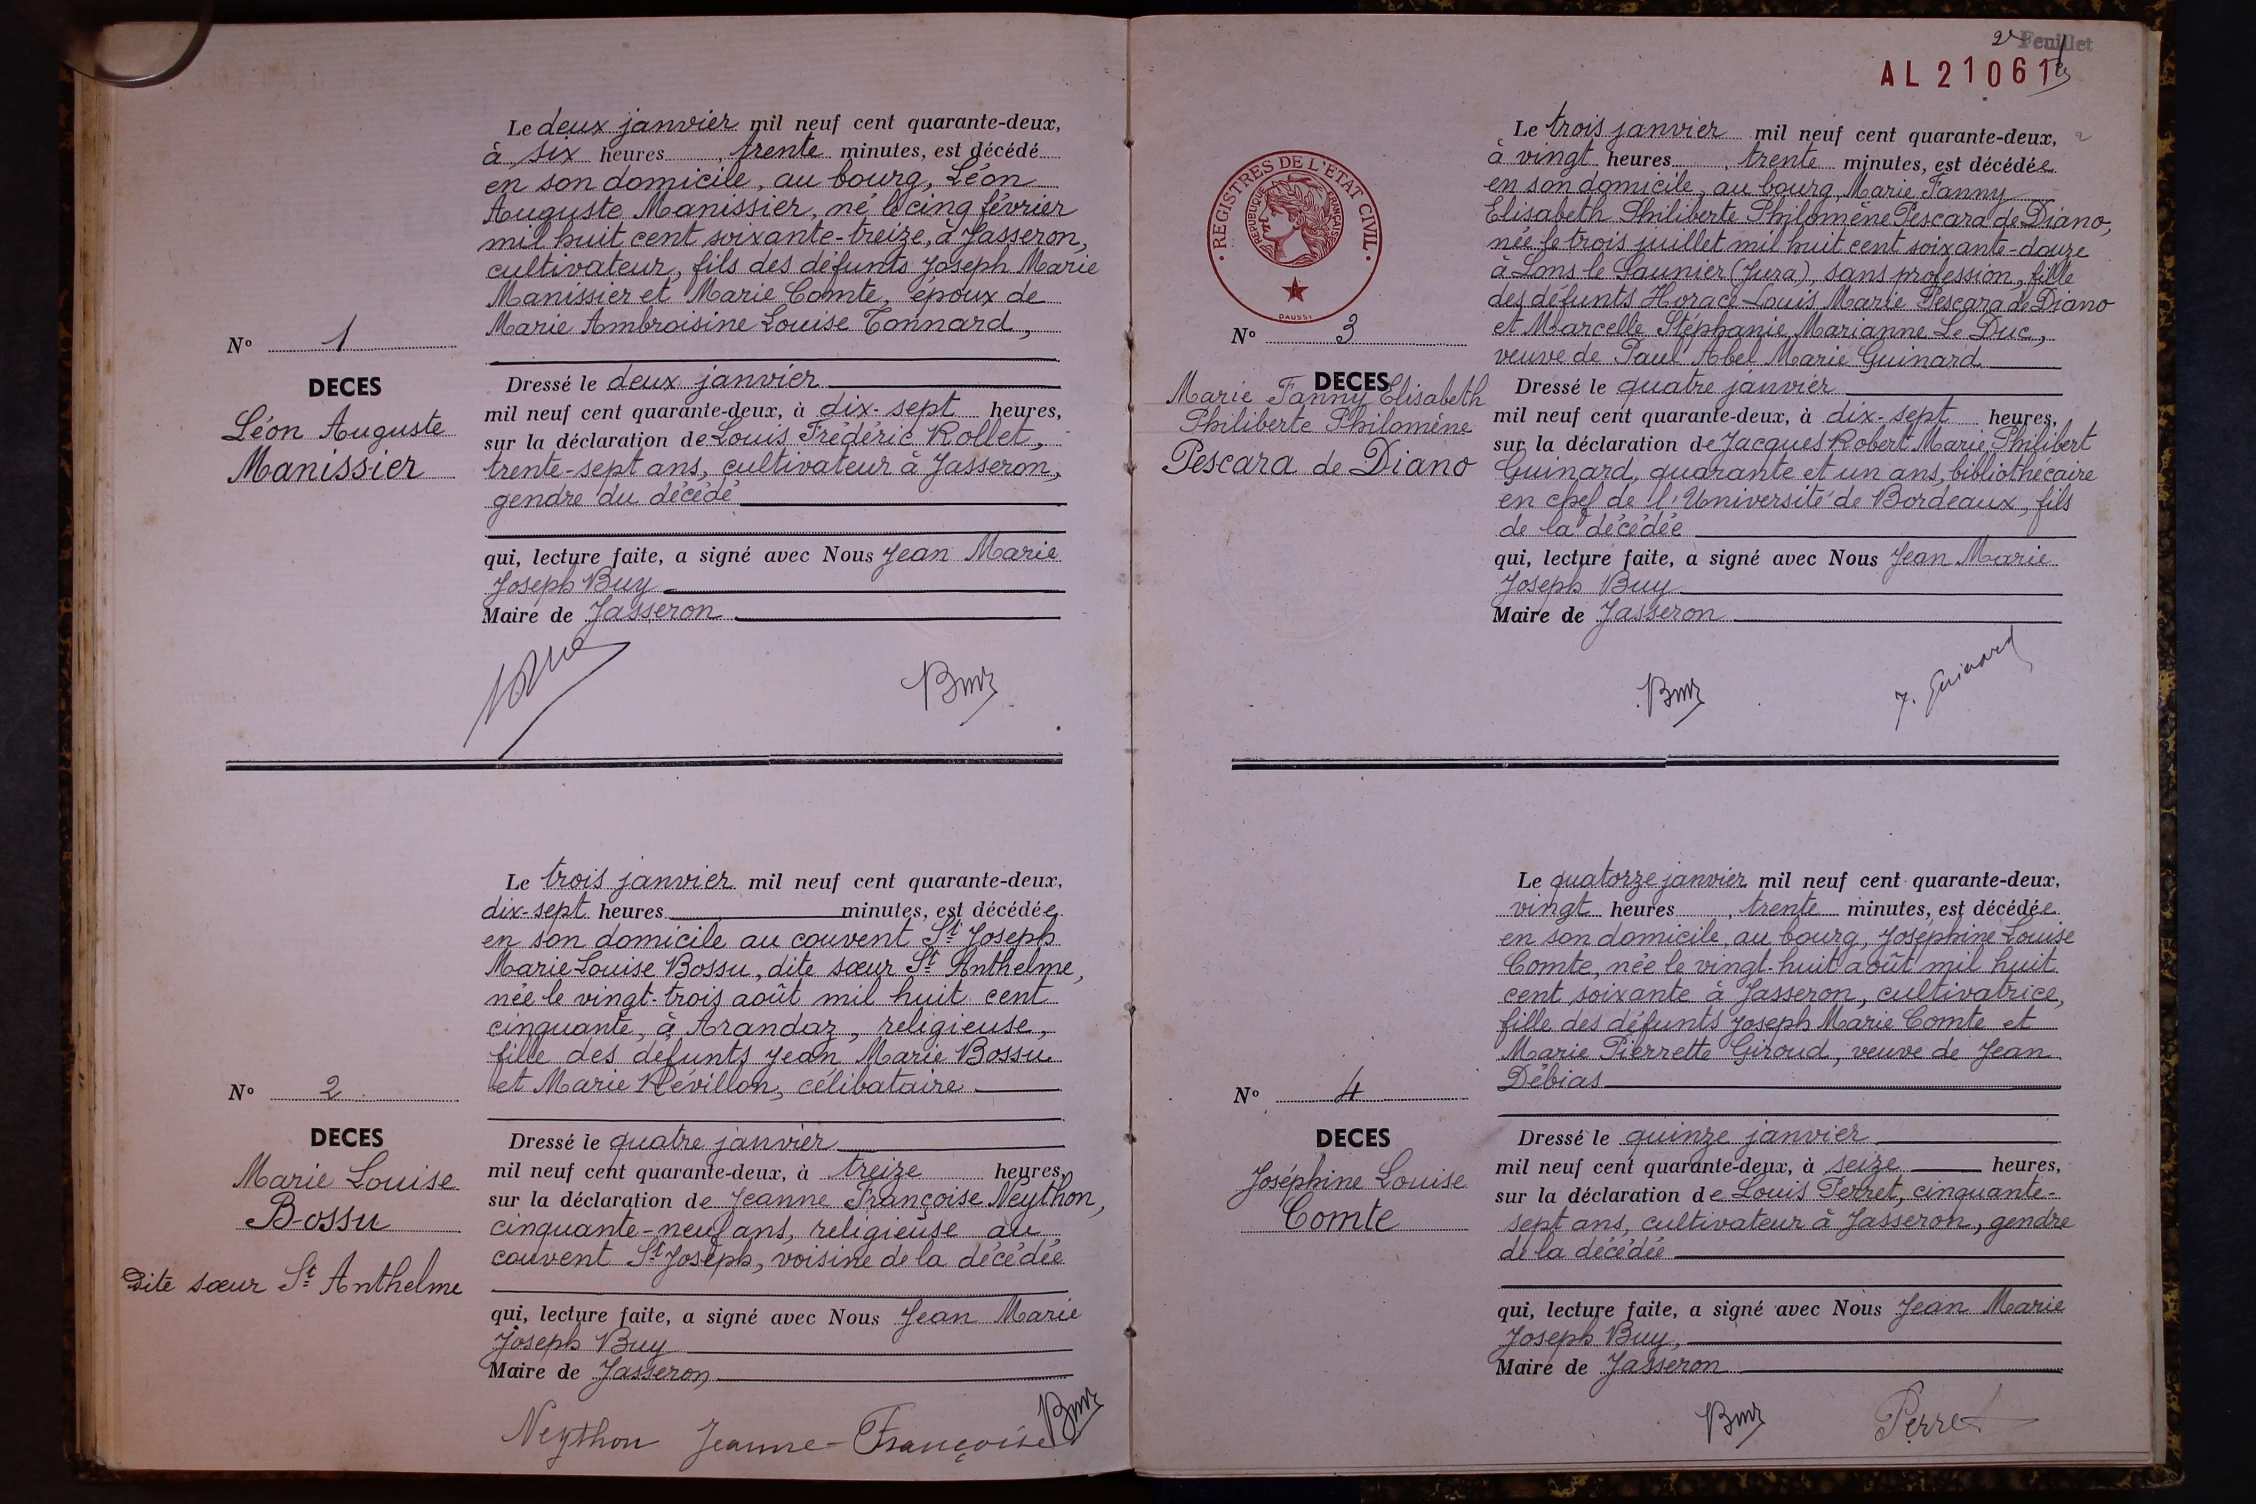 Le deux janvier mil neuf cent quarante-deux,
à six heures, trente minutes, est décédé
en son domicile, au bourg, Léon
Auguste Manissier, né le cinq février
mil huit cent soixante-treize, à Jasseron,
cultivateur, fils des défunts Joseph Marie
Manissier et Marie Comte, époux de
Marie Ambroisine Louise Tonnard,
N° 1
DECES
Léon Auguste
Manissier
Dressé le deux janvier
mil neuf cent quarante-deux, à dix-sept heures,
sur la déclaration de Louis Frédéric Rollet,
trente-sept ans, cultivateur à Jasseron,
gendre du décédé
qui, lecture faite, a signé avec Nous Jean Marie
Joseph Buy
Maire de Jasseron
Buy
Le trois janvier mil neuf cent quarante-deux,
dix-sept heures minutes, est décédée
en son domicile au couvent St Joseph
Marie Louise Bossu, dite sœur St Anthelme,
née le vingt-trois août mil huit cent
cinquante, à Arandaz, religieuse,
fille des défunts Jean Marie Bossu
et Marie Révillon, célibataire
N° 2
DECES
Marie Louise
Bossu
Dite sœur St Anthelme
Dressé le quatre janvier
mil neuf cent quarante-deux, à treize heures,
sur la déclaration de Jeanne Françoise Neython,
cinquante-neuf ans, religieuse au
couvent St Joseph, voisine de la décédée
qui, lecture faite, a signé avec Nous Jean Marie
Joseph Buy
Maire de Jasseron
Neython Jeanne-Françoise Buy
2 Feuillet
AL 21061
REGISTRES DE L'ETAT CIVIL
REPUBLIQUE FRANÇAISE
DAUSSI
Le trois janvier mil neuf cent quarante-deux, 2
à vingt heures, trente minutes, est décédée
en son domicile, au bourg, Marie Fanny
Elisabeth Philiberte Philomène Pescara de Diano,
née le trois juillet mil huit cent soixante-douze
à Lons le Saunier (Jura), sans profession, fille
des défunts Horace Louis Marie Pescara de Diano
et Marcelle Stéphanie Marianne Le Duc,
veuve de Paul Abel Marie Guinard
N° 3
DECES
Marie Fanny Elisabeth
Philiberte Philomène
Pescara de Diano
Dressé le quatre janvier
mil neuf cent quarante-deux, à dix-sept heures,
sur la déclaration de Jacques Robert Marie Philibert
Guinard, quarante et un ans, bibliothécaire
en chef de l'Université de Bordeaux, fils
de la décédée
qui, lecture faite, a signé avec Nous Jean Marie
Joseph Buy
Maire de Jasseron
Buy J. Guinard
Le quatorze janvier mil neuf cent quarante-deux,
vingt heures, trente minutes, est décédée
en son domicile, au bourg, Joséphine Louise
Comte, née le vingt-huit août mil huit
cent soixante à Jasseron, cultivatrice,
fille des défunts Joseph Marie Comte et
Marie Pierrette Giroud, veuve de Jean
Débias
N° 4
DECES
Joséphine Louise
Comte
Dressé le quinze janvier
mil neuf cent quarante-deux, à seize heures,
sur la déclaration de Louis Perret, cinquante-
sept ans, cultivateur à Jasseron, gendre
de la décédée
qui, lecture faite, a signé avec Nous Jean Marie
Joseph Buy,
Maire de Jasseron
Buy Perret